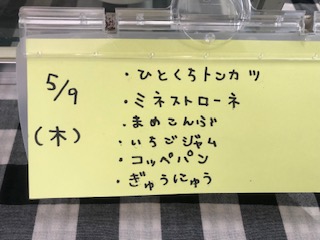 5/9
(木)
・ひとくちトンカツ
・ミネストローネ
・まめこんぶ
・いちごジャム
・コッペパン
・ぎゅうにゅう